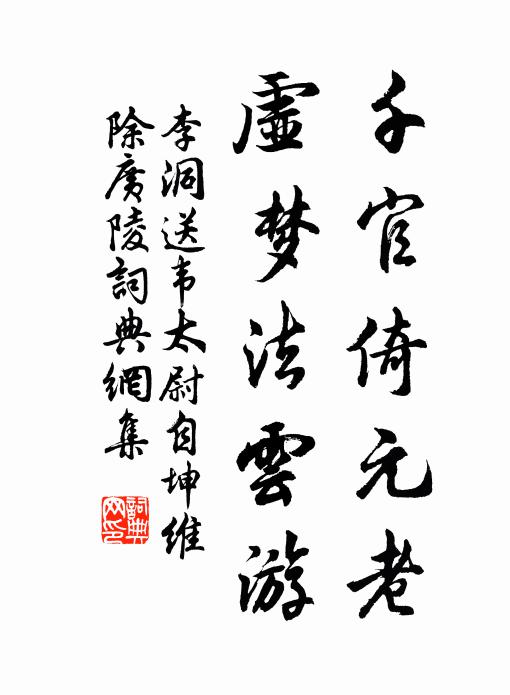 千官倚元老
虚梦法雲游
李洞送韦太尉自坤维
除廣陵詞典網集
詞典
网印